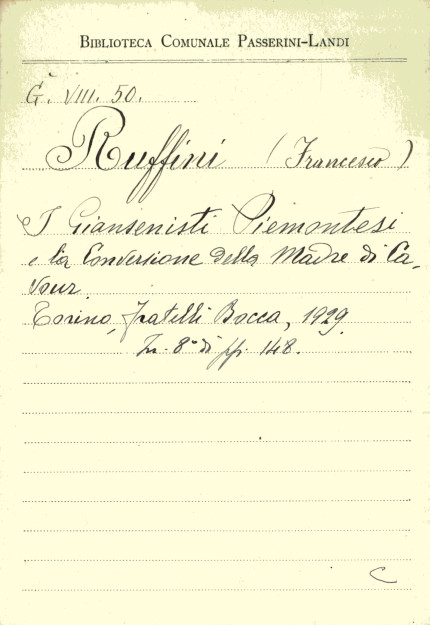 BIBLIOTECA COMUNALE PASSERINI-LANDI
G. VIII. 50.
Ruffini (Francesco)
I Giansenisti Piemontesi
e la Conversione della Madre di Ca-
vour.
Torino, fratelli Bocca, 1929.
In. 8° di pp. 148.
C